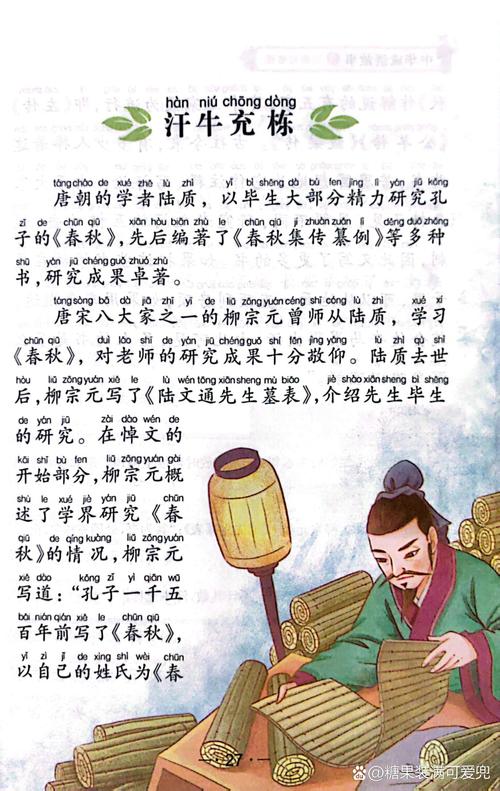 hàn niú chōng dòng
汗牛充栋
táng cháo de xué zhě lù zhì yǐ bì shēng dà bù fen jīng lì yán jiū kǒng
唐朝的学者陆质，以毕生大部分精力研究孔
zǐ de chūn qiū xiān hòu biān zhù le chūn qiū jí zhuàn zuǎn lì děng duō zhǒng
子的《春秋》，先后编著了《春秋集传纂例》等多种
shū yán jiū chéng guǒ zhuó zhù
书，研究成果卓著。
táng sòng bā dà jiā zhī yī de liǔ zōng yuán céng shī cóng lù zhì xué xí
唐宋八大家之一的柳宗元曾师从陆质，学习
chūn qiū duì lǎo shī de yán jiū chéng guǒ shí fēn jìng yǎng lù zhì qù shì
《春秋》，对老师的研究成果十分敬仰。陆质去世
hòu liǔ zōng yuán xiě le lù wén tōng xiān sheng mù biǎo jiè shào xiān sheng bì shēng
后，柳宗元写了《陆文通先生墓表》，介绍先生毕生
de yán jiū zài dào wén de
的研究。在悼文的
kāi shǐ bù fen liǔ zōng yuán gài
开始部分，柳宗元概
shù le xué jiè yán jiū chūn
述了学界研究《春
qiū de qíng kuàng liǔ zōng yuán
秋》的情况，柳宗元
xiě dào kǒng zǐ yì qiān wǔ
写道：“孔子一千五
bǎi nián qián xiě le chūn qiū
百年前写了《春秋》，
yǐ zì jǐ de xìng shì wéi chūn
以自己的姓氏为《春
27
@糖果装满可爱兜